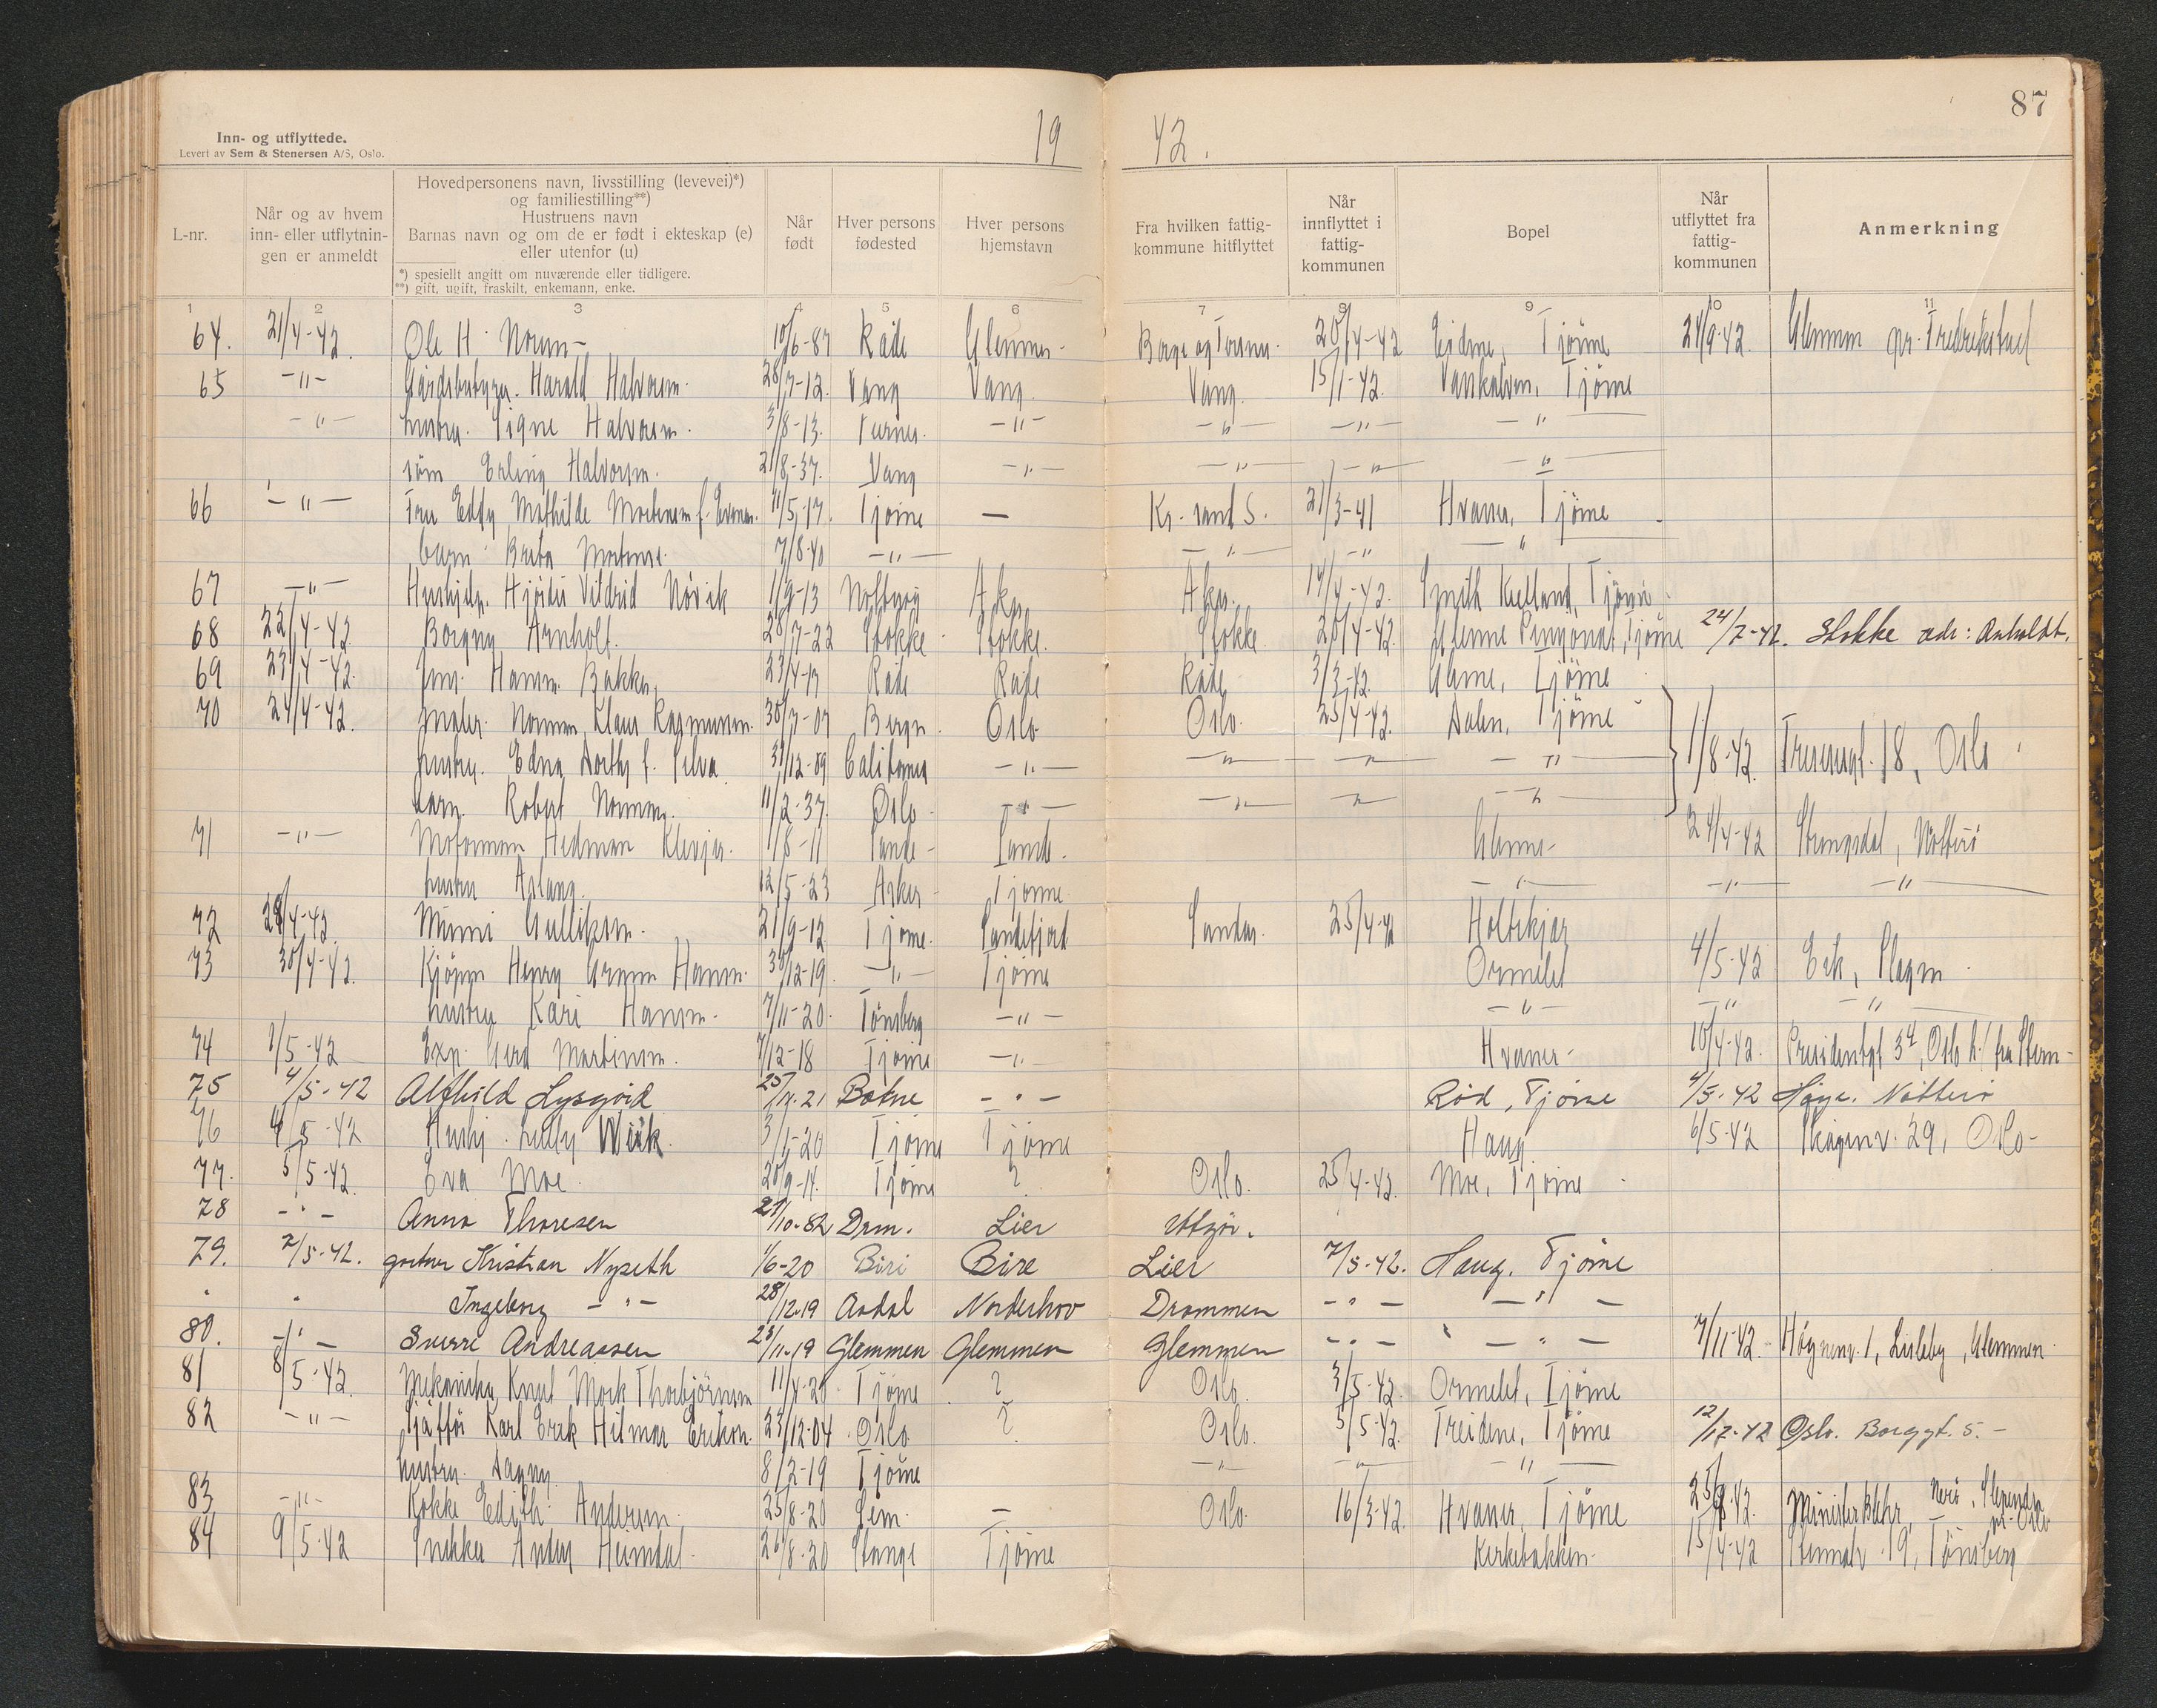 87
Inn- og utflyttede.
Levert av Sem & Stenersen A/S, Oslo.
19 42.
L-nr.
Når og av hvem inn- eller utflytnin- gen er anmeldt
Hovedpersonens navn, livsstilling (levevei)*)
og familiestilling**)
Hustruens navn
Barnas navn og om de er født i ekteskap (e)
eller utenfor (u)
*) spesielt angitt om nuværende eller tidligere.
**) gift, ugift, fraskilt, enkemann, enke.
Når født
Hver persons fødested
Hver persons hjemstavn
Fra hvilken fattig- kommune hitflyttet
Når innflyttet i fattig- kommunen
Bopel
Når utflyttet fra fattig- kommunen
Anmerkning
1 2 3 4 5 6 7 8 9 10 11
64. 21/4-42. Ole H. Norum- 10/6-87 Råde Glemmen- Borge og Torsnes. 20/4-42 Eidene, Tjöme 24/9-42. Glemmen pr. Fredrikstad
65 -"- Gårdsbestyrer. Harald Halvorsen. 28/7-12. Vang Vang. Vang. 15/1-42. Tjöme
-"- hustru. Signe Halvorsen. 3/8-13. -"- -"- -"- -"-
sönn Erling Halvorsen. 21/8-37. Vang -"- -"- -"- -"-
66 -"- Fru Eddy Mathilde Mortensen f. 11/5-17. Tjöme — Kr.sand S. 21/3-41 Hvaner, Tjöme
barn Mortensen. 7/8-40 -"- -"- -"- -"-
67 -"- Hushjelp. Hjördis Vildrid 1/9-13 Nötteröy Aker. Aker. 14/4-42. Smith Kielland, Tjöme
68 22/4-42 Borgny Arnholt. 28/7-22 Stokke Stokke. Stokke. 20/4-42. Pensjonat, Tjöme 24/7-42. Stokke adr: Anholdt.
69 23/4-42. Hansen Bakke. 23/4-17 Råde Råde Råde 3/3-42. Glenne, Tjöme
70 24/4-42. Norman Klaus Rasmussen. 30/7-07 Bergen. Oslo Oslo. 25/4-42. Dalen, Tjöme 1/8-42. 18, Oslo
hustru. Edna Dorthy f. Silva. 31/12-09 California -"- -"- -"- -"-
barn. Robert Norman. 11/2-37. Oslo -"- -"- -"- -"-
71 -"- Motormann Hedman Klevjer. 1/8-11 Sande- Sande. Glenne- 24/4-42 Strengsdal, Nötterö
hustru Aslaug. 12/5-23 Asker- Tjöme -"- -"- -"-
72 28/4-42. Mimmi Gulliksen. 21/9-12. Tjöme. Sandefjord Sandar. 25/4-42 Holtekjær
73 30/4-42. Kjöpm Henry Hansen. 30/12-19. -"- Tjöme Ormelet 4/5-42 Eik, Slagen.
hustru Kari Hansen- 7/11-20. Tönsberg -"- -"- -"- -"-
74 1/5-42 Exp. Gerd Martinsen. 7/12-18 Tjöme -"- Hvaner- 10/4-42. Presidentgt 3, Oslo
75 4/5-42 Alfhild Lysgård 25/ 21 Botne -"- Rød, Tjöme 4/5-42 Nötterö
76 4/5-42 Hushj. Wiik. 3/1-20 Tjöme Tjöme Haug 6/5-42 Skagenv. 29, Oslo-
77. 5/5-42. Eva Moe. 20/9-14. Tjöme ? Oslo. 25/4-42. Moe, Tjöme
78 -"- Anna Thoresen 21/10-82 Drm. Lier
79. 2/5-42. gartner Kristian Nyseth 1/6-20 Biri Bire Lier 7/5-42. Haug. Tjöme
" " Ingeborg -"- 28/12-19 Aadal Norderhov Drammen -"- -"-
80. -"- Sverre Andreassen 23/11-19 Glemmen Glemmen Glemmen -"- -"- 7/11-42. 1, Lisleby, Glemmen
81 8/5-42. Mekaniker Knut Mork Thorbjörnsen 11/4-21 Tjöme ? Oslo. 3/5-42. Ormelet, Tjöme
82 -"- Sjåför Karl Erik Hilmar Erikson. 23/12-04 Oslo ? Oslo. 5/5-42. Treidene, Tjöme 12/12-42 Oslo. Borggt. 5.-
hustru. Dagny 8/2-19 Tjöme -"- -"- -"-
83 -"- Kokke Edith Andersen. 25/8-20 Sem. — Oslo. 16/3-42. Hvaner, Tjöme Slependen pr. Oslo
84 9/5-42 Snekker Heimdal. 20/8-20 Stange Tjöme Kirkebakken- 15/4-42 19, Tönsberg